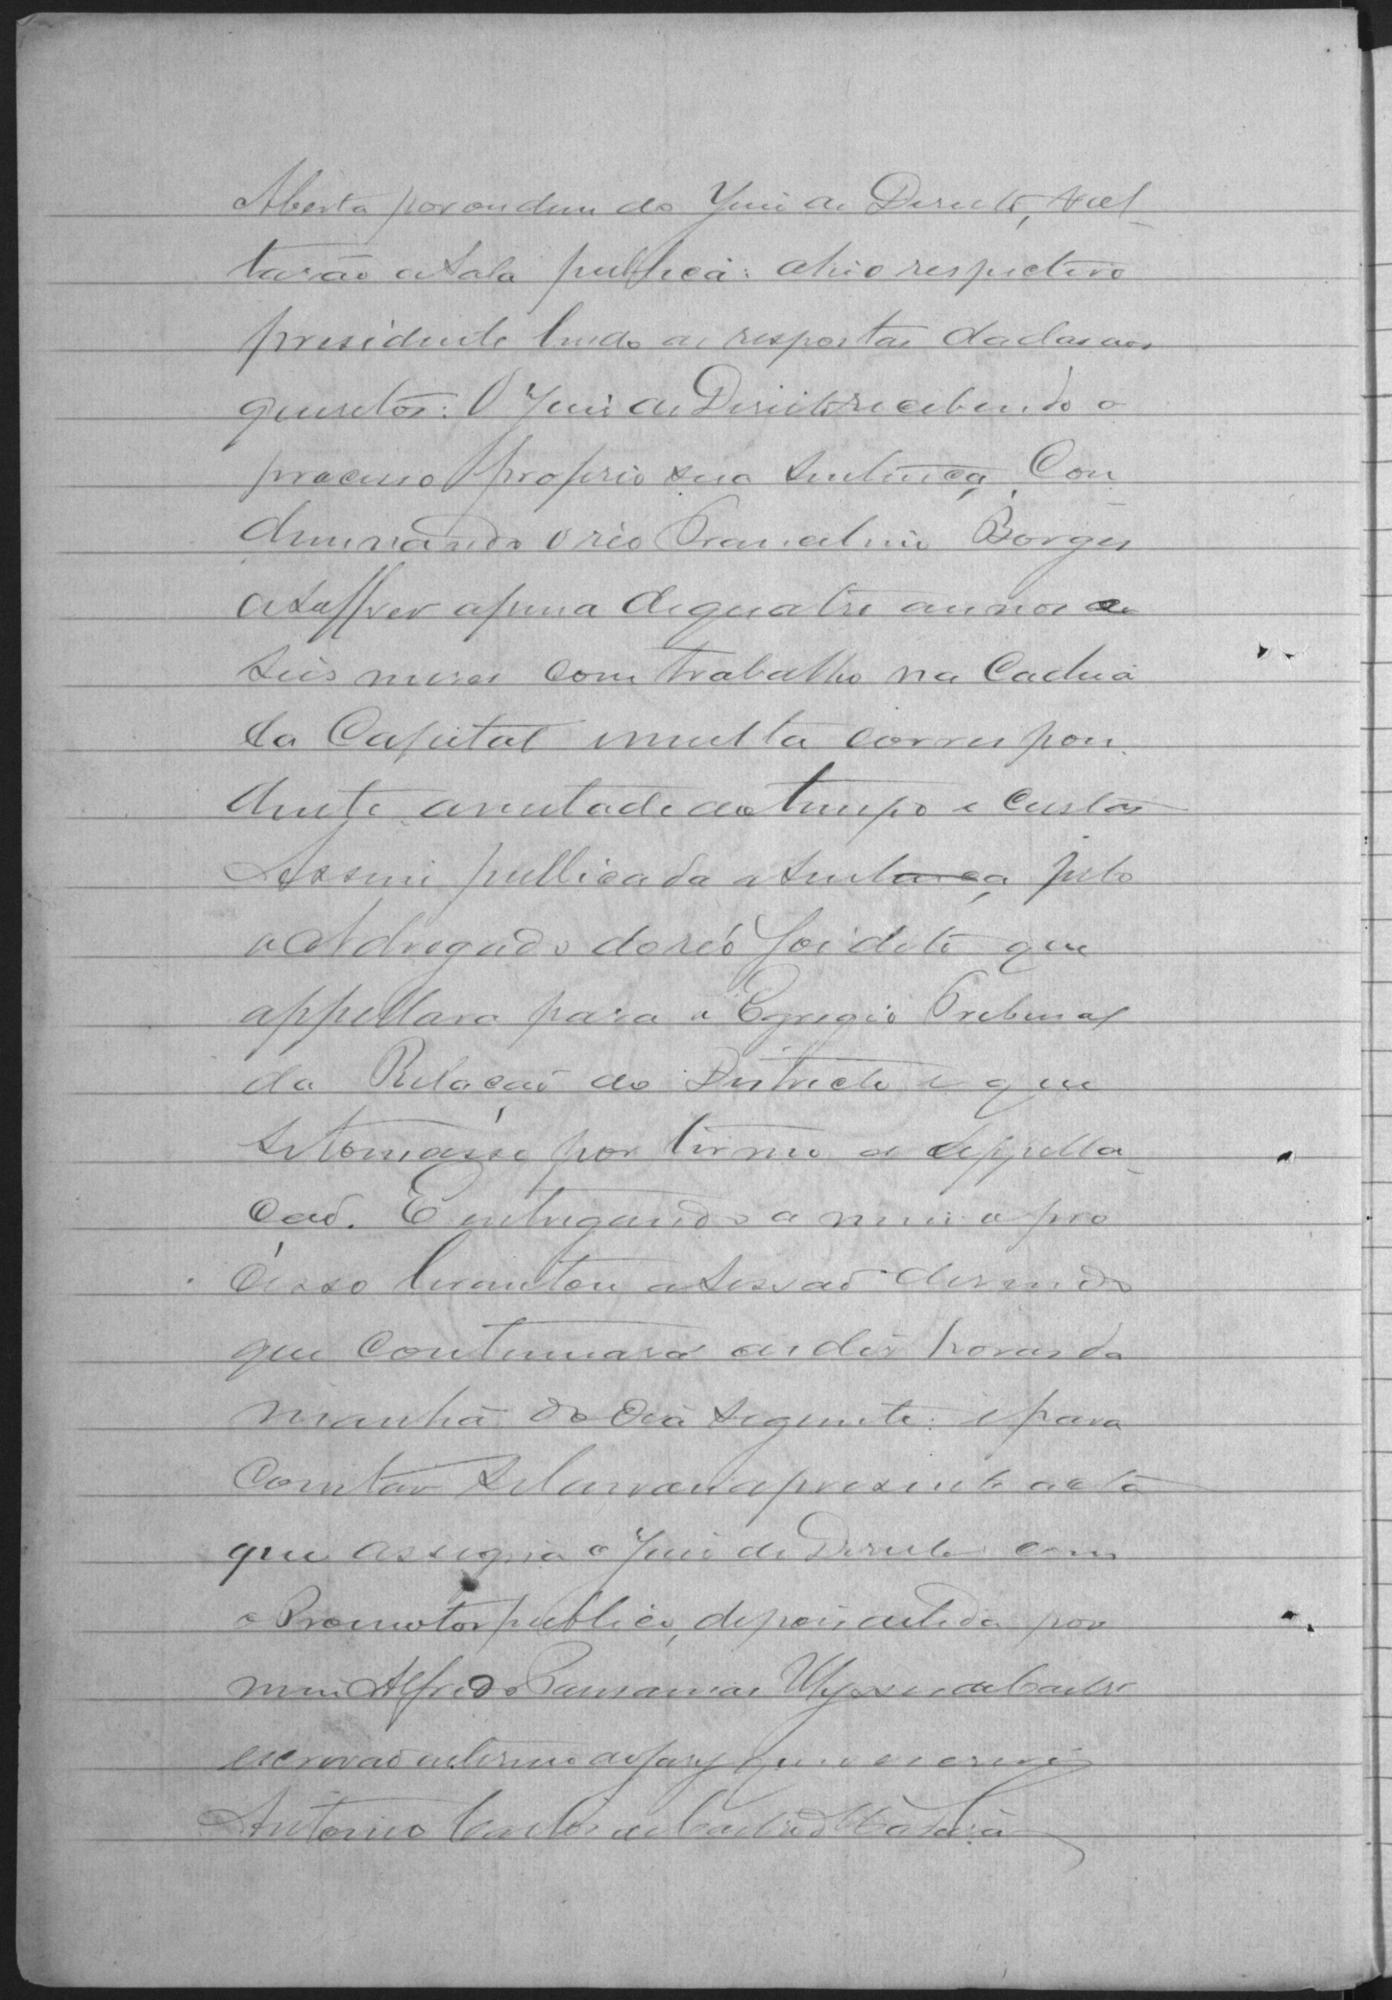 Aberta por ordem do Juiz de Direito, vol-
tarão a sala publica: ahi o respectivo
presidente lendo as respostas dadas aos
quesitos: O Juiz de Direito recebendo o
processo proferio sua sentença, Con
demnando o réo Francelino Borges
a soffrer a pena de quatro annos e
seis meses com trabalho na Cadeia
da Capital e multa correspon
dente a metade do tempo e custas
Assim publicada a sentença pelo
advogado do réo foi dito que
appellava para o Egregio Tribunal
da Relação do Districto e que
se tomasse por termo a appella-
ção. E entregando a mim o pro
cesso levantou a sessão disendo
que continuará as dez horas da
manhã do dia seguinte: e para
constar se lavrou a presente acta
que assigna o Juiz de Direito com
o Promotor publico, depois de lida por
mim Alfredo Pausanias Ulysses de Castro
escrivão interino do jury que o escrevi
Antonio Carlos de Castro